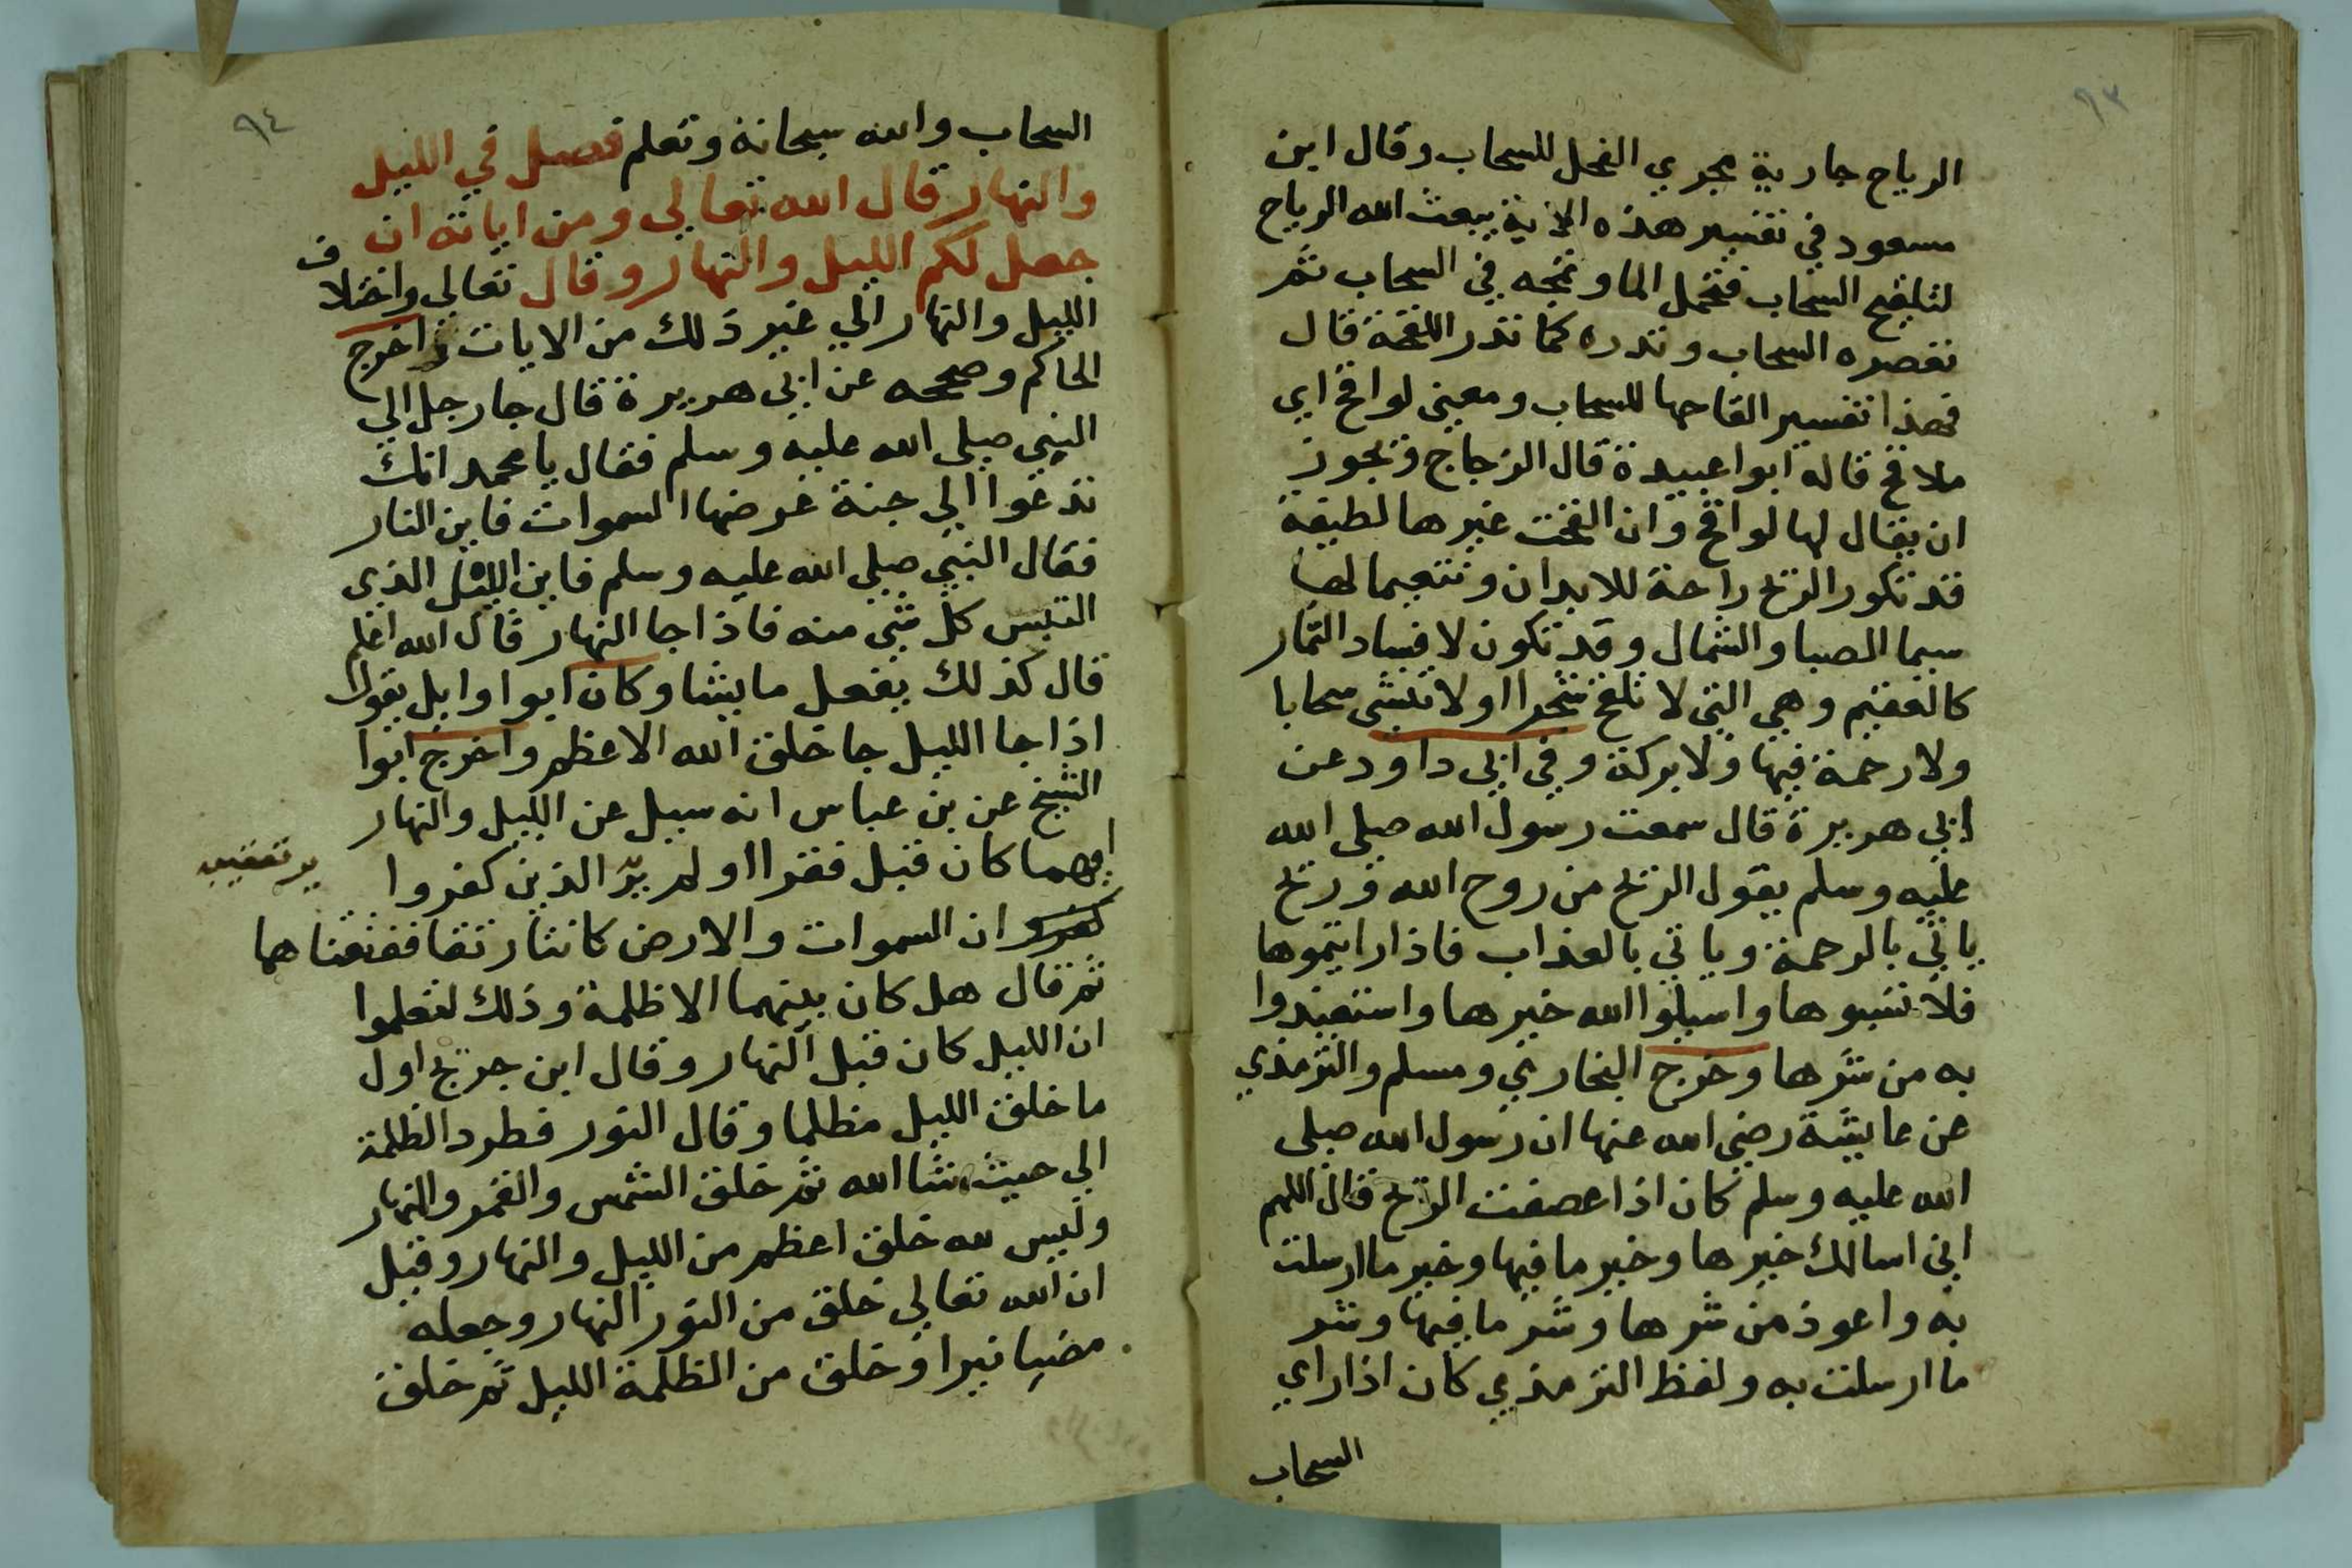 ٩٣
الرياح جارية مجري الفحل للسحاب وقال ابن
مسعود في تفسير هذه الاية يبعث الله الرياح
لتلقيح السحاب فتحمل الما وتمجه في السحاب ثم
تعصره السحاب وتدره كما تدر اللقحة قال
فهذا تفسير القاحها للسحاب ومعنى لواقح اي
ملاقح قاله ابوا عبيدة قال الزجاج ويجوز
ان يقال لها لواقح وان القحت غيرها لطيفة
قد تكور الريح راحة للابدان وتنعيما لها
سيما الصبا والشمال وقد تكون لافساد الثمار
كالعقيم وهي التي لا تلقح شجرا اولا تنشي سحابا
ولا رحمة فيها ولا بركة وفي ابي داود عن
ابي هريرة قال سمعت رسول الله صلى الله
عليه وسلم يقول الريح من روح الله وريح
ياتي بالرحمة وياتي بالعذاب فاذا رايتموها
فلا تسبوها واسيلوا الله خيرها واستعيذوا
به من شرها وخرج البخاري ومسلم والترمذي
عن عايشة رضي الله عنها ان رسول الله صلى
الله عليه وسلم كان اذا عصفت الريح قال اللهم
اني اسالك خيرها وخير ما فيها وخير ما ارسلت
به واعوذ من شرها وشر ما فيها وشر
ما ارسلت به ولفظ الترمذي كان اذا راي
السحاب
٩٤
السحاب والله سبحانه وتعلم فصل في الليل
والنهار قال الله تعالي ومن اياته ان
جعل لكم الليل والنهار وقال تعالي واختلاف
الليل والنهار الي غير ذلك من الايات واخرج
الحاكم وصححه عن ابي هريرة قال جا رجل الي
النبي صلى الله عليه وسلم فقال يا محمد انك
تدعوا الي جنة عرضها السموات فاين النار
فقال النبي صلي الله عليه وسلم فاين الليل الذي
التبس كل شي منه فاذا جا النهار قال الله اعلم
قال كذلك يفعل ما يشا وكان ابوا وايل يقول
اذا جا الليل جا خلق الله الاعظم واخرج ابوا
الشيخ عن بن عباس انه سيل عن الليل والنهار
ايهما كان قبل فقرا اولم ير الذين كفروا
ان السموات والارض كانتا رتقا ففتقناهما
ثم قال هل كان بينهما الا ظلمة وذلك لتعلموا
ان الليل كان قبل النهار وقال ابن جريج اول
ما خلق الليل مظلما وقال النور فطرد الظلمة
الي حيث شا الله ثم خلق الشمس والقمر والنهار
وليس لله خلق اعظم من الليل والنهار وقيل
ان الله تعالي خلق من النور النهار وجعله
مضيا نيرا وخلق من الظلمة الليل ثم خلق